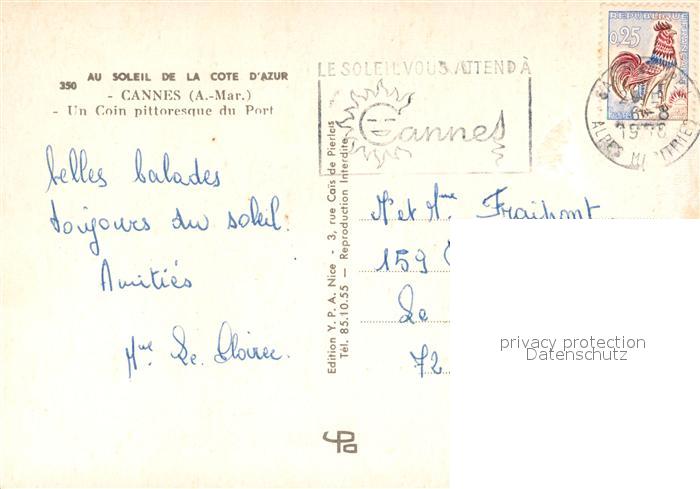 350 AU SOLEIL DE LA COTE D'AZUR
- CANNES (A.-Mar.)
- Un Coin pittoresque du Port
belles balades
toujours du soleil.
Amitiés
Edition Y. P. A. Nice - 3, rue Caïs de Pierlas
Tél. 85.10.55 - Reproduction Interdite
LE SOLEIL VOUS ATTEND À
Cannes
REPUBLIQUE FRANÇAISE
0,25
ALPES MARITIMES
M et Mme Fraipont
159
Le
72
privacy protection
Datenschutz